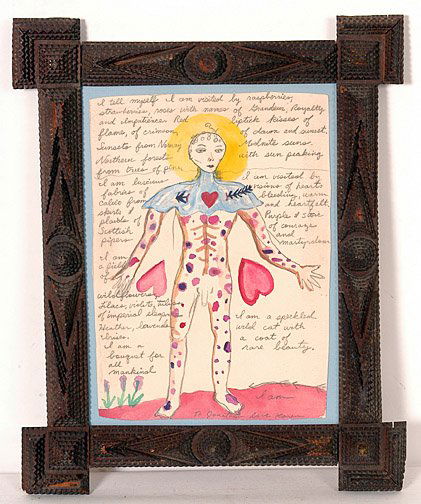 I tell myself I am visited by raspberries,
strawberries, roses with names of Grandeur, Royalty
and Impatience Red lipstick kisses of
flame, of crimson of dawn and sunset.
Sunsets from Norway Midnite suns
Northern forests with sun peaking
from trees of pine
I am luscious
fabrics of
calico from
skirts
plaids of
Scottish
pipers
I am
a field
of
wildflowers,
lilacs, violets, tulips
of imperial elegance
Heather, lavender
irises.
I am a
bouquet for
all
mankind
I am visited by
visions of hearts
bleeding, warm
and heartfelt
Purple
of courage
and
martyrdom
I am a speckled
wild cat with
a coat of
rare beauty.
I am
To love